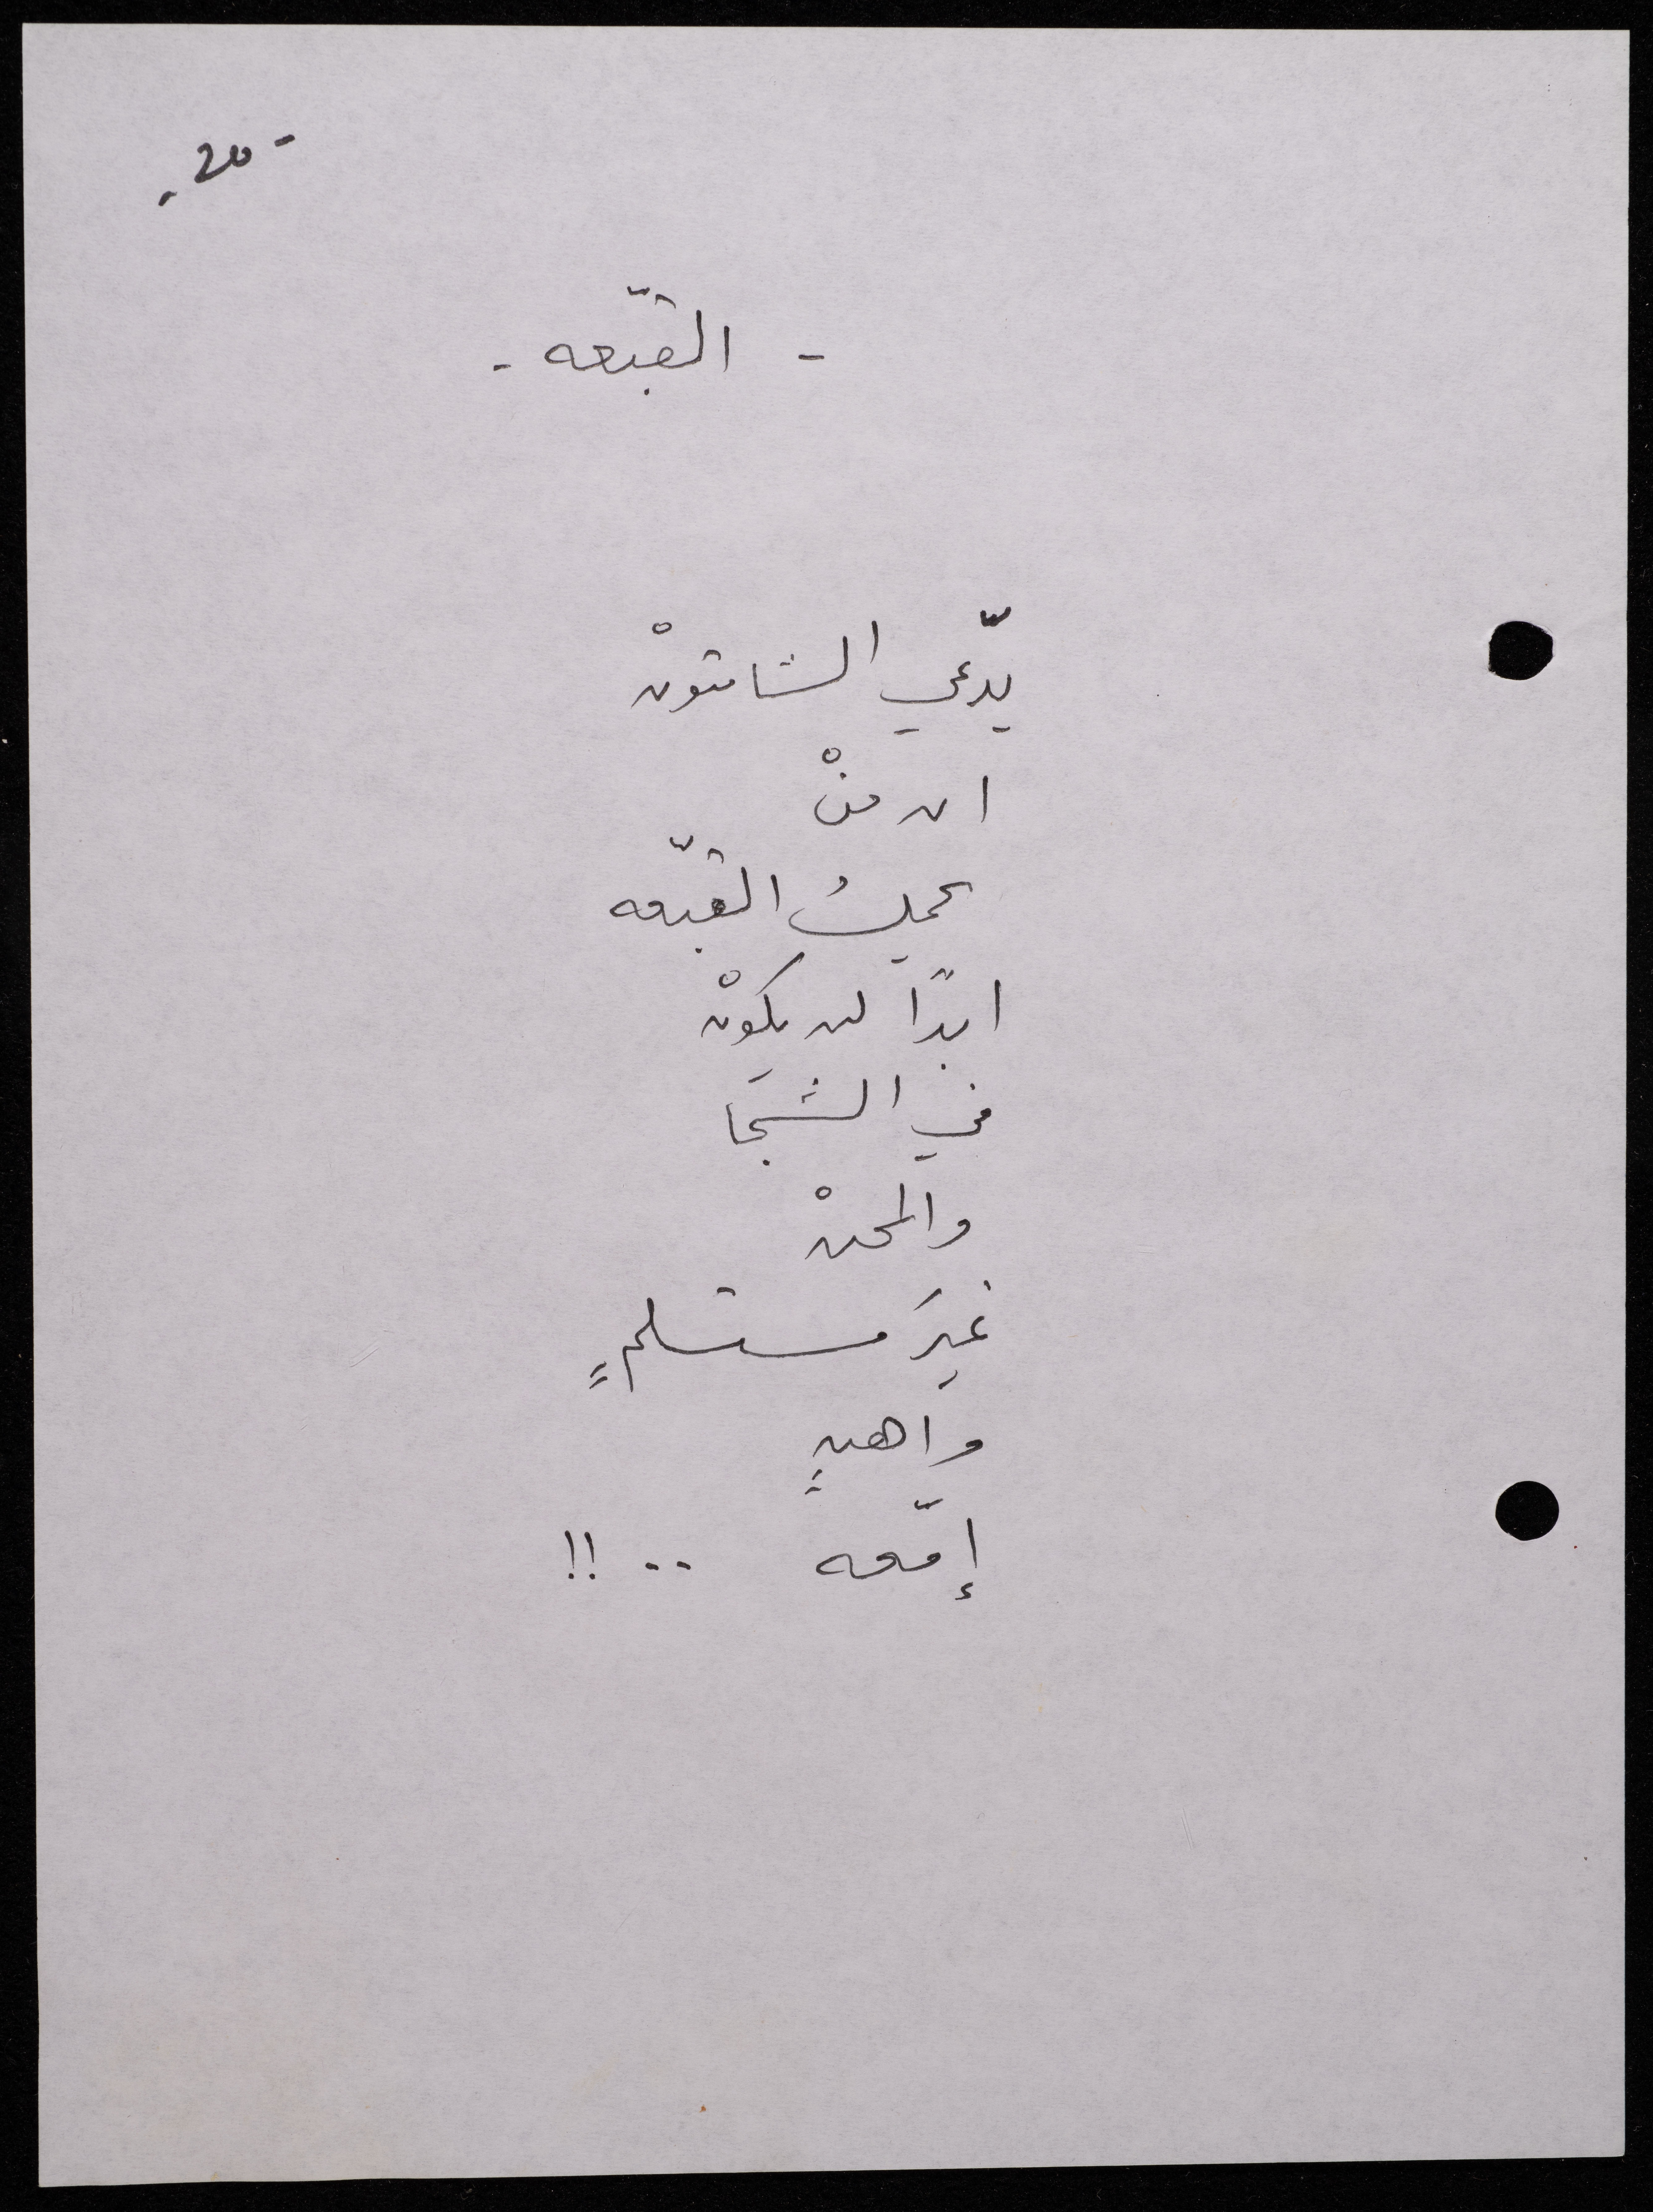 - ٢٥ -
- القبّعه -
يدّعي الشامتونْ
ان منْ
يحملُ القبّعه
ابدًا لن يكونْ
في الشجَا
والمحنْ
غيرَ مستسلمٍ
واهنٍ
إمّعه .. !!